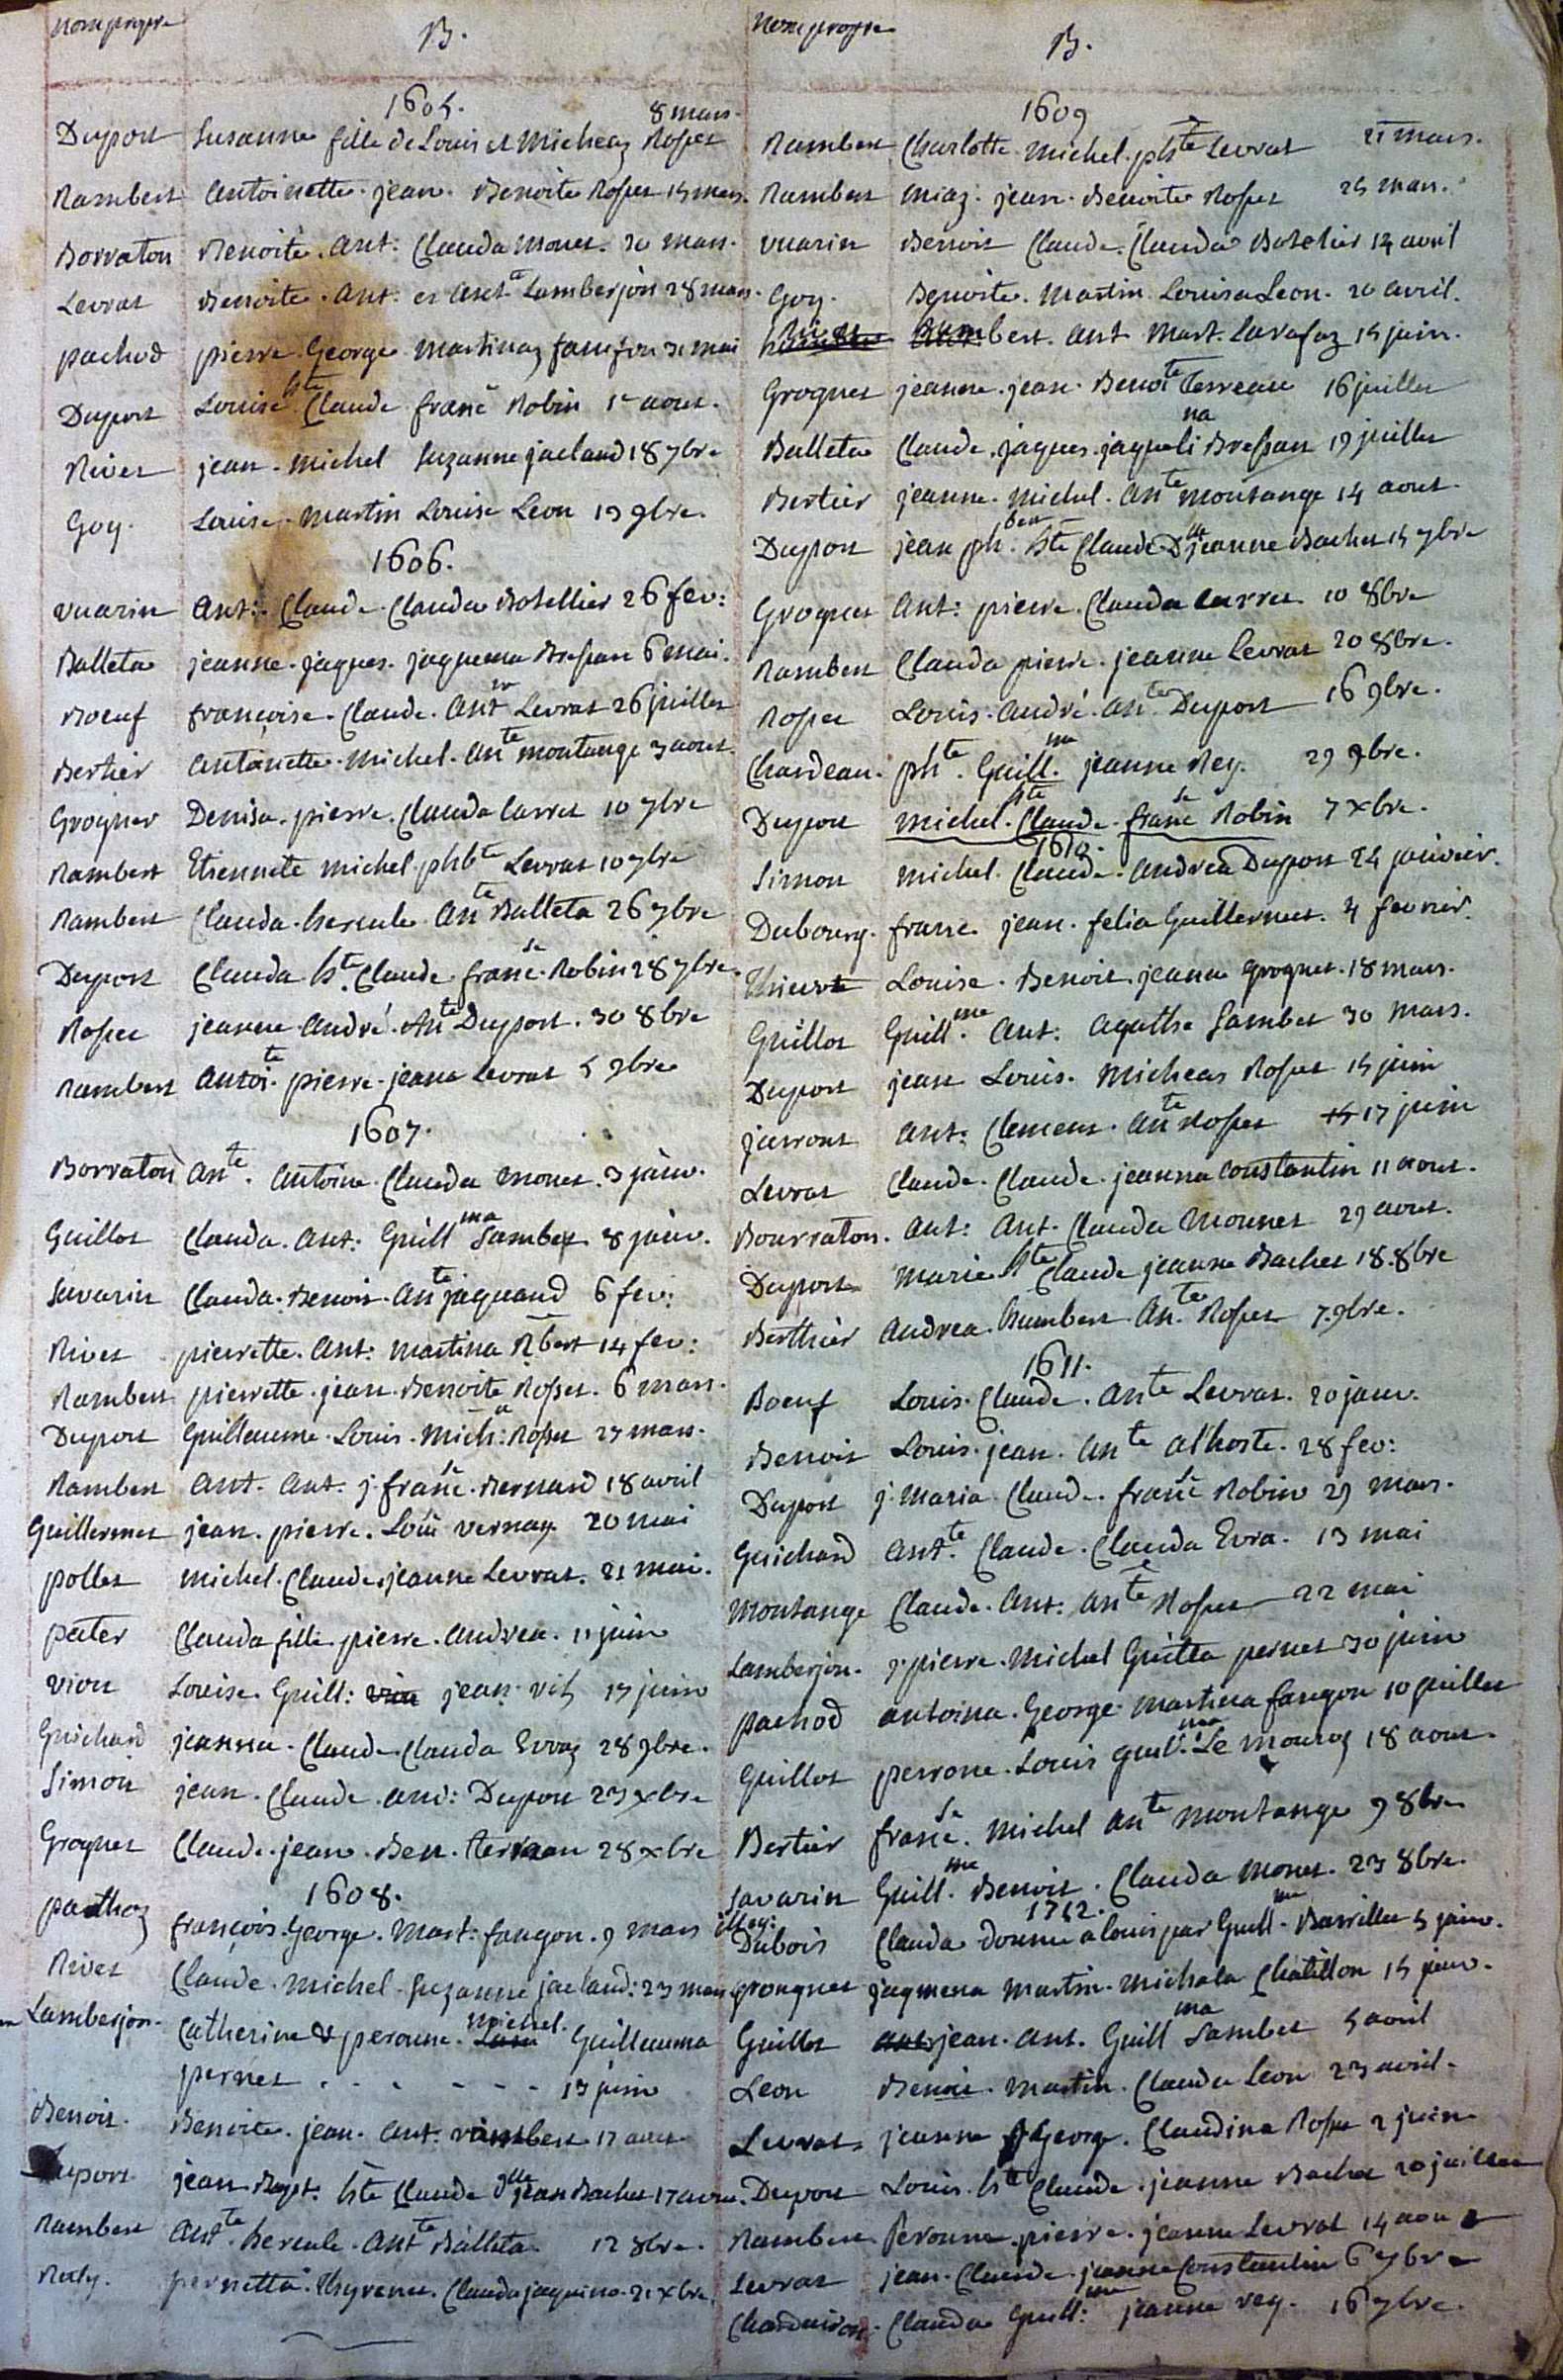 nom propre B.
1605.
8 mars.
Duport Susanne fille de Louis et Micheaz Rosset
Rambert Antoinette. jean. Benoite Rosset 15 mars.
Borraton Benoite. Ant: Clauda Monet. 20 mars.
Levrat Benoite. Ant. et Ant.te Lamberjon 28 mars.
pachod pierre. George Martinaz fanjon 31 mai
Duport Louise hte Claude franc Robin 1er aout.
Rivet jean. Michel Suzanne jacland 18 7bre
Goy. Louise. Martin Louise Leon 19 9bre.
1606.
vuarin Ant: Claude. Clauda Botellier 26 fev:
Balleta jeanne. jaques. jaquema Bressan 6 mai.
Boeuf françoise. Claude. Ant Levrat 26 juillet
Bertier Antoinette. Michel. Ante montange 3 aout.
Grognet Denisa. pierre. Clauda Carret 10 7bre
Rambert Etiennete michel phbte Levrat 10 7bre
Rambert Clauda. hercule. Ante Balleta 26 7bre
Duport Clauda hte. Claude. francse. Robin 28 7bre.
Rosset jeanne André. Ante Duport. 30 8bre
Rambert Antoite. pierre. jeana Levrat 5 9bre
1607.
Borraton Ante. Antoine. Clauda Monet. 3 janv.
Guillot Clauda. Ant: Guillma Sambet 8 janv.
Savarin Clauda. Benoit. Ante jaquand 6 fev:
Rivet pierrette. Ant: Martina Rbert 14 fev:
Rambert pierrette. jean. Benoite Rosset. 6 mars.
Duport Guillaume. Louis. Mich:a Rosset 27 mars.
Rambert Ant. Ant. j. francse. Bernard 18 avril
Guillermet jean. pierre. Loui vernay. 20 mai
pollet michel. Claude. jeanne Levrat. 21 mai.
pater Clauda fille. pierre. Andrea. 11 juin
vion Louise. Guill: vion jean vit 17 juin
Guichard jeanna. Claude. Clauda Evraz 28 9bre.
Simon jean. Claude. And: Dupon 23 xbre
Grognet Claude. jean. Ben. terreau 28 xbre
1608.
pacthoz françois. George. Mart: fangon. 9 mars
Rivet Claude. Michel. Suzanne jacland: 23 mars
Lamberjon. Catherine & peronne. michel. Guillauma
pernet . . . . . . . 13 juin
Benoit. Benoite. jean. Ant: rambert 17 aout
Duport. jean Bapt. hte Claude Dlle jean Bachet 17
Rambert Antte. hercule. Ant Balleta 12 8bre.
Rely. pernetta. Thyvent. Clauda jaquino. 21 xbre
nom propre B.
1609
Rambert Charlotte. Michel. phte Levrat 21 mars.
Rambert Miaz. jean. Benoite Rosset 25 mars.
vuarin Benoit Claude. Clauda Botelier 14 avril
Goy. Benoite. Martin. Louisa Leon. 20 avril.
Humbert. Ant Mart. Lavafaz 15 juin.
Grognet jeanne. jean. Benoite Terreau 16 juillet
Balleta Claude. jaques. jaquelina Bressan 19 juillet
Bertier jeanne. Michel. Ante montange 14 aout.
Duport jean ph. hte Claude Dlle jeanne Bachet 15 7bre
Grognet Ant: pierre. Clauda Carret 10 8bre
Rambert Clauda pierre. jeanne Levrat 20 8bre.
Rosset Louis. André. Ante Duport 16 9bre.
Chardeau. phte. Guill.me jeanne Rey. 29 9bre.
Duport Michel. hte Claude. francse Robin 7 xbre.
1610.
Simon michel. Claude. Andrea Duport 24 janvier.
Dubourg. franc. jean. felia Guillermet. 4 fevrier.
Thievot Louise. Benoit. jeanne grognet. 18 mars.
Guillot Guill.me Ant: Agathe Sambet 30 mars.
Duport jean Louis. Micheas Rosset 15 juin
jarront Ant: Clement. Ante Rosset 17 juin
Levrat Claude. Claude. jeanna Constantin 11 aout.
Bourraton. Ant: Ant. Clauda Monnet 29 aout.
Duport Marie hte Claude jeanne Bachet 18. 8bre
Berthier Andrea. humbert. Ante. Rosset 7. 9bre.
1611.
Boeuf Louis. Claude. Ante Levrat. 20 janv.
Benoit Louis. jean. Ante alhoste. 28 fev:
Duport j. Maria. Claude. francse Robin 29 mars.
Guichard Antte. Claude. Clauda Evra. 13 mai
Montange Claude. Ant: Ante Rosset 22 mai
Lamberjon. j. pierre. Michel Guilla pernet 30 juin
pachod antoina. George. Martina fangon 10 juillet
Guillot perrone. Louis guil:ma Le Mouroz 18 aout.
Bertier francse. Michel Ante Montange 9 8bre
Savarin Guill.me Benoit. Clauda Monet. 23 8bre.
1712.
illeg: Dubois Clauda donnee a louis par Guill.me Barrillet 5 janv.
grougnet jaqmena Martin. Michala Chatillon 15 janv.
Guillot jean. Ant. Guillma Sambet 5 avril
Leon Benoit. Martin. Clauda Leon 23 avril.
Levrat jeanne George. Claudina Rosset 2 juin
Duport Louis. hte Claude. jeanne Bachet 20 juillet
Rambert Peronne. pierre. jeanne Levrat 14 aout
Levrat jean. Claude. jeanne Constantin 6 7bre
Chardeiron. Clauda Guill:me jeanne rey. 16 7bre.